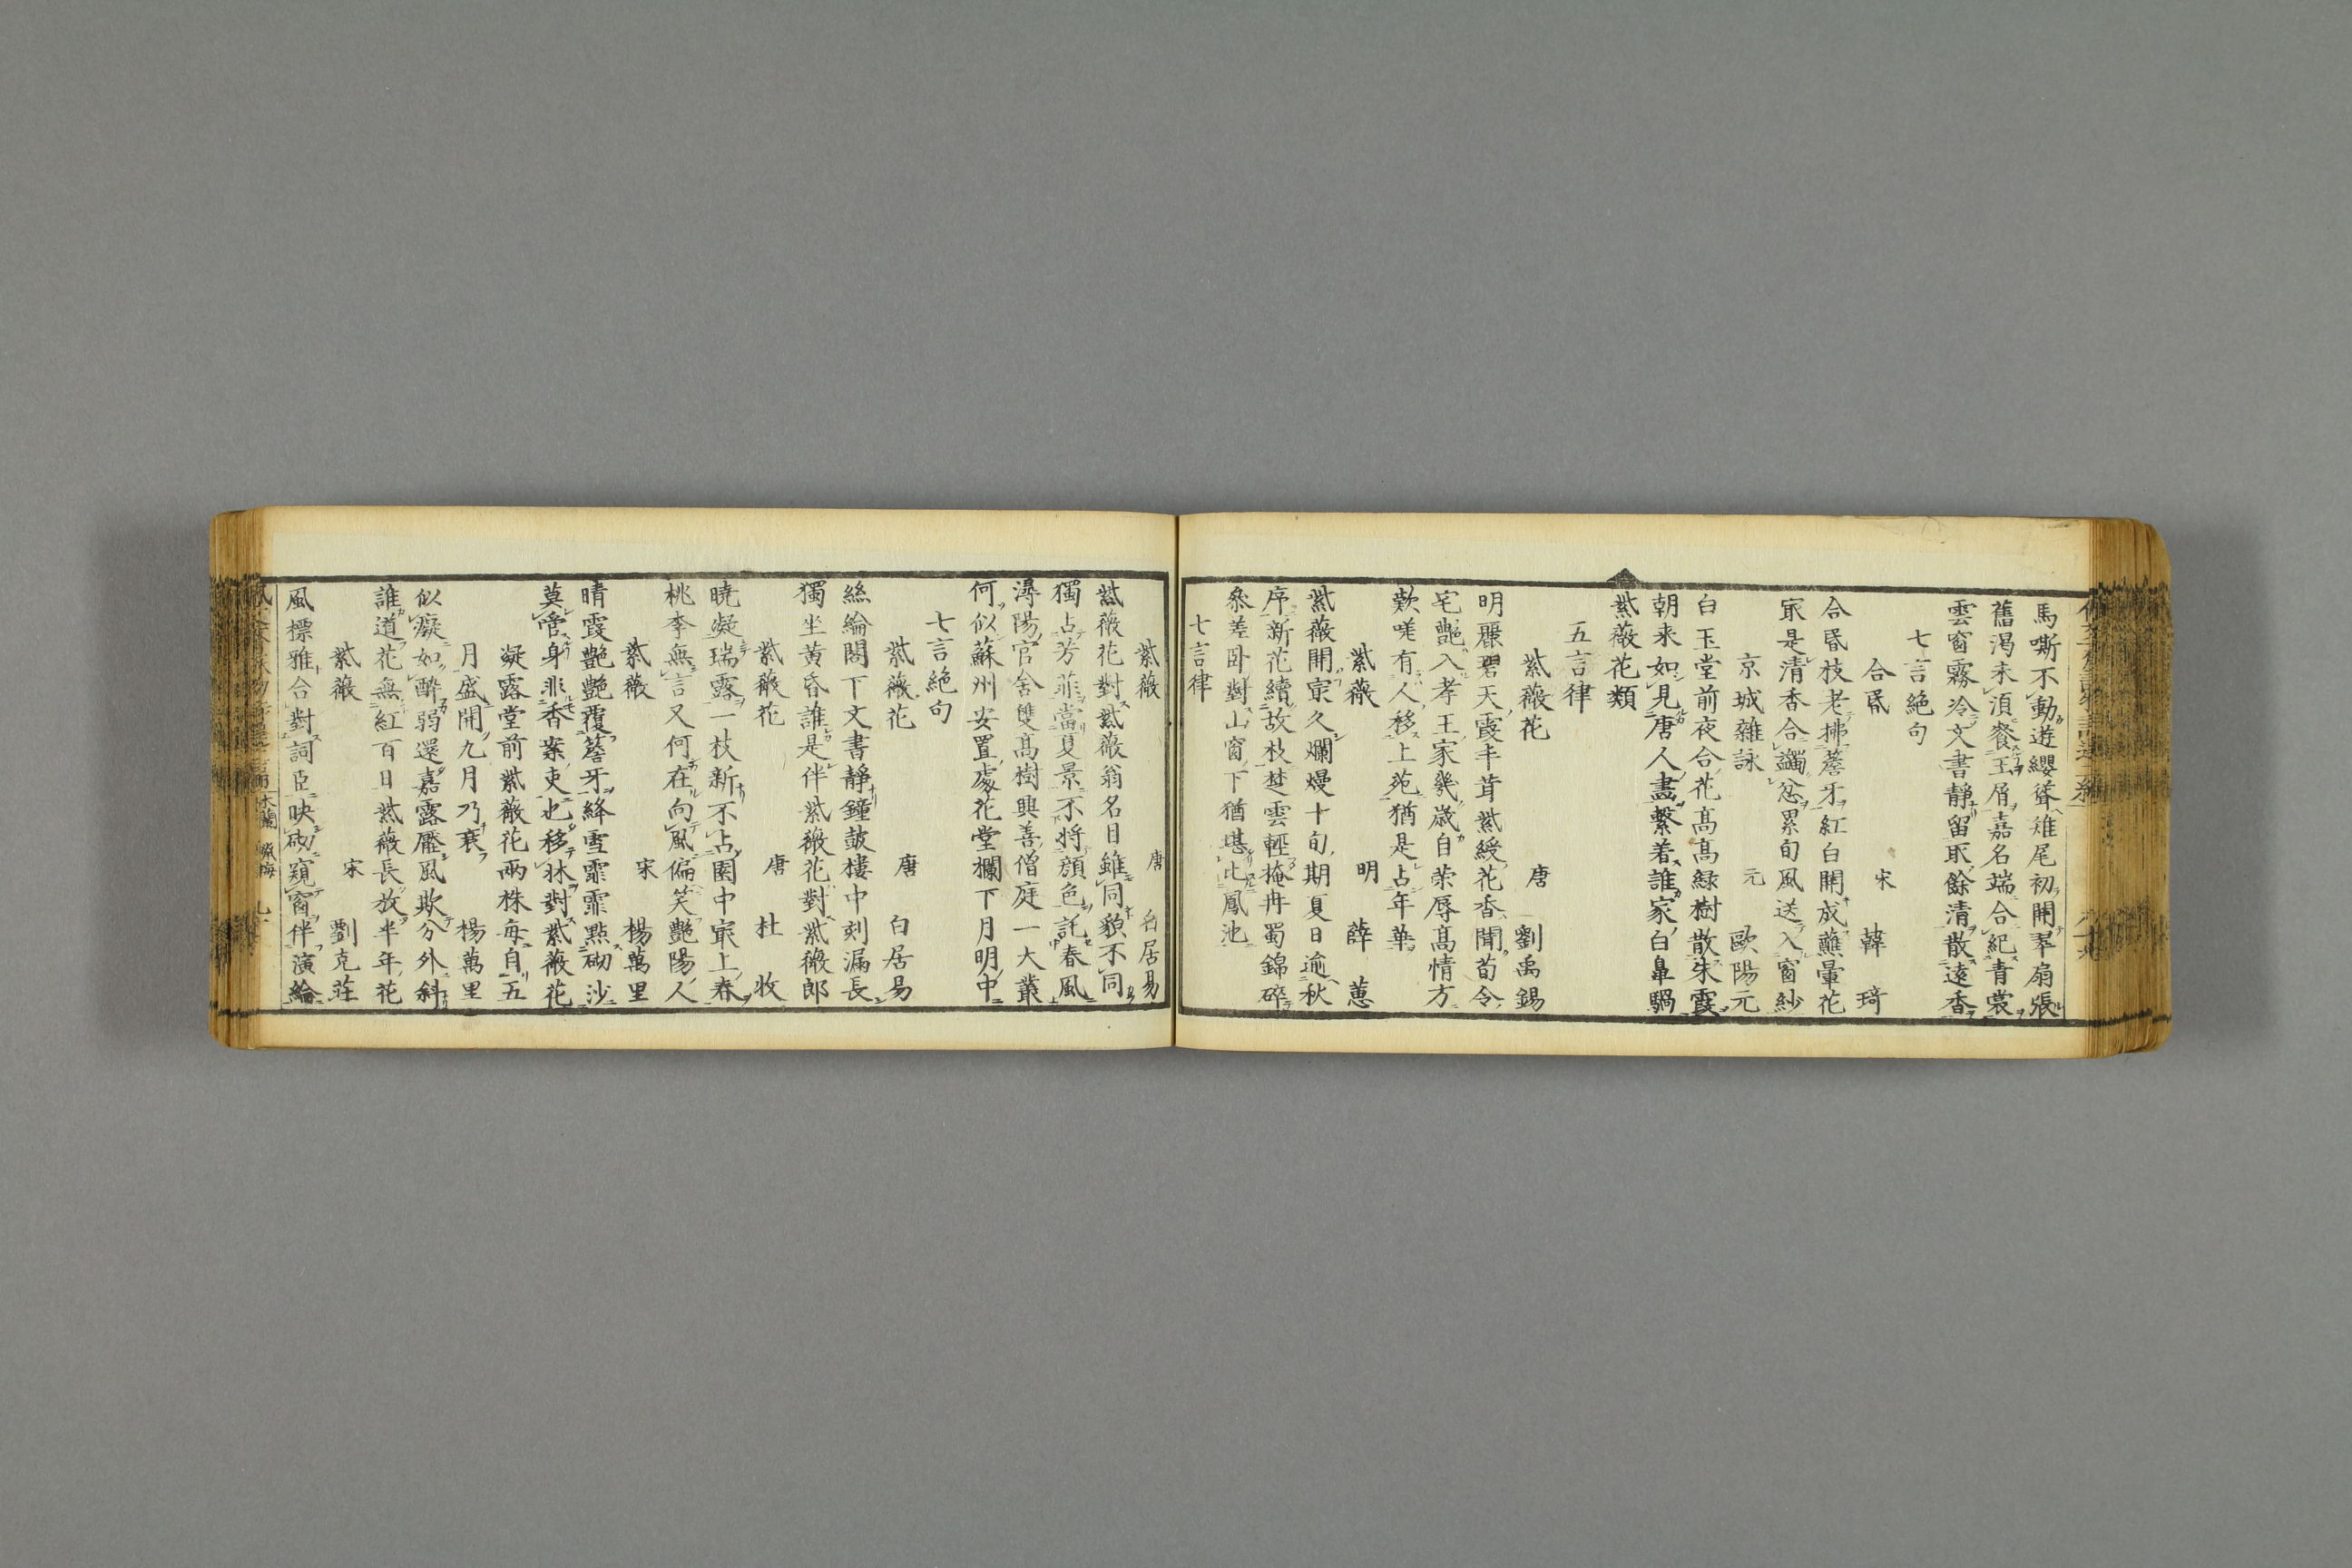 馬嘶不動遊纓聳雉尾初開翠扇張
舊渇未須餐玉屑嘉名端合紀青裳
雲窗霧冷文書靜留取餘清散遠香
七言絶句
合昏 宋 韓琦
合昏枝老拂簷牙紅白開成蘸暈花
㝡是清香合蠲忿累旬風送入窗紗
京城雜詠 元 歐陽元
白玉堂前夜合花髙髙緑樹散朱霞
朝来如見唐人畫繫着誰家白鼻騧
紫薇花類
五言律
紫薇花 唐 劉禹錫
明麗碧天霞丰茸紫綬花香聞荀令
宅艶入孝王家幾歳自荣辱髙情方
歎嗟有人移上苑猶是占年華
紫薇 明 薛蕙
紫薇開㝡久爛熳十旬期夏日逾秋
序新花續故枝楚雲輕掩冉蜀錦碎
叅差卧對山窗下猶堪比鳳池
七言律
紫薇 唐 白居易
紫薇花對紫薇翁名目雖同貌不同
獨占芳菲當夏景不将顔色託春風
潯陽官舍雙髙樹興善僧庭一大叢
何似蘇州安置處花堂欄下月明中
七言絶句
紫薇花 唐 白居易
絲綸閣下文書靜鐘皷樓中刻漏長
獨坐黄昏誰是伴紫薇花對紫薇郎
紫薇花 唐 杜牧
曉凝瑞露一枝新不占園中㝡上春
桃李無言又何在向風偏笑艶陽人
紫薇 宋 楊萬里
晴霞艶艶覆簷牙絳雪霏霏點砌沙
莫管身非香案吏也移牀對紫薇花
凝露堂前紫薇花兩株毎自五
月盛開九月乃衰 楊萬里
似癡如醉弱還嘉露壓風欺分外斜
誰道花無紅百日紫薇長放半年花
紫薇 宋 劉克莊
風標雅合對詞臣映砌窺窗伴演綸